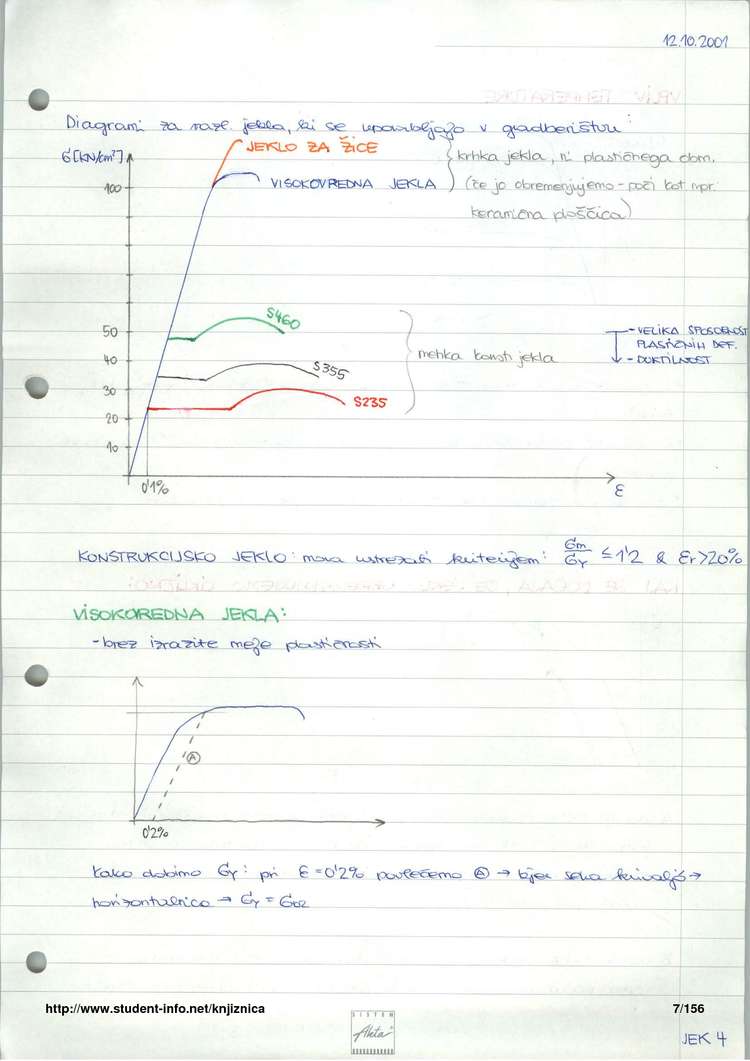 12.10.2001
Diagrami za razl. jekla, ki se uporabljajo v gradbeništvu:
σ [kN/cm²]
JEKLO ZA ŽICE
VISOKOVREDNA JEKLA
krhka jekla, ni plastičnega obm.
(če jo obremenjujemo - poči kot npr.
keramična ploščica)
100
S460
50
40
S355
30
S235
20
10
mehka konst. jekla
- VELIKA SPOSOBNOST
PLASTIČNIH DEF.
- DUKTILNOST
0'1%
ε
KONSTRUKCIJSKO JEKLO: mora ustrezati kriterijem: σm/σy ≤ 1'2 & εr > 20%
VISOKOVREDNA JEKLA:
- brez izrazite meje plastičnosti
A
0'2%
Kako dobimo σy: pri ε = 0'2% povlečemo Ⓐ → kjer seka krivuljo →
horizontalnica → σy = σ02
http://www.student-info.net/knjiznica
7/156
SISTEM
Akta
JEK 4